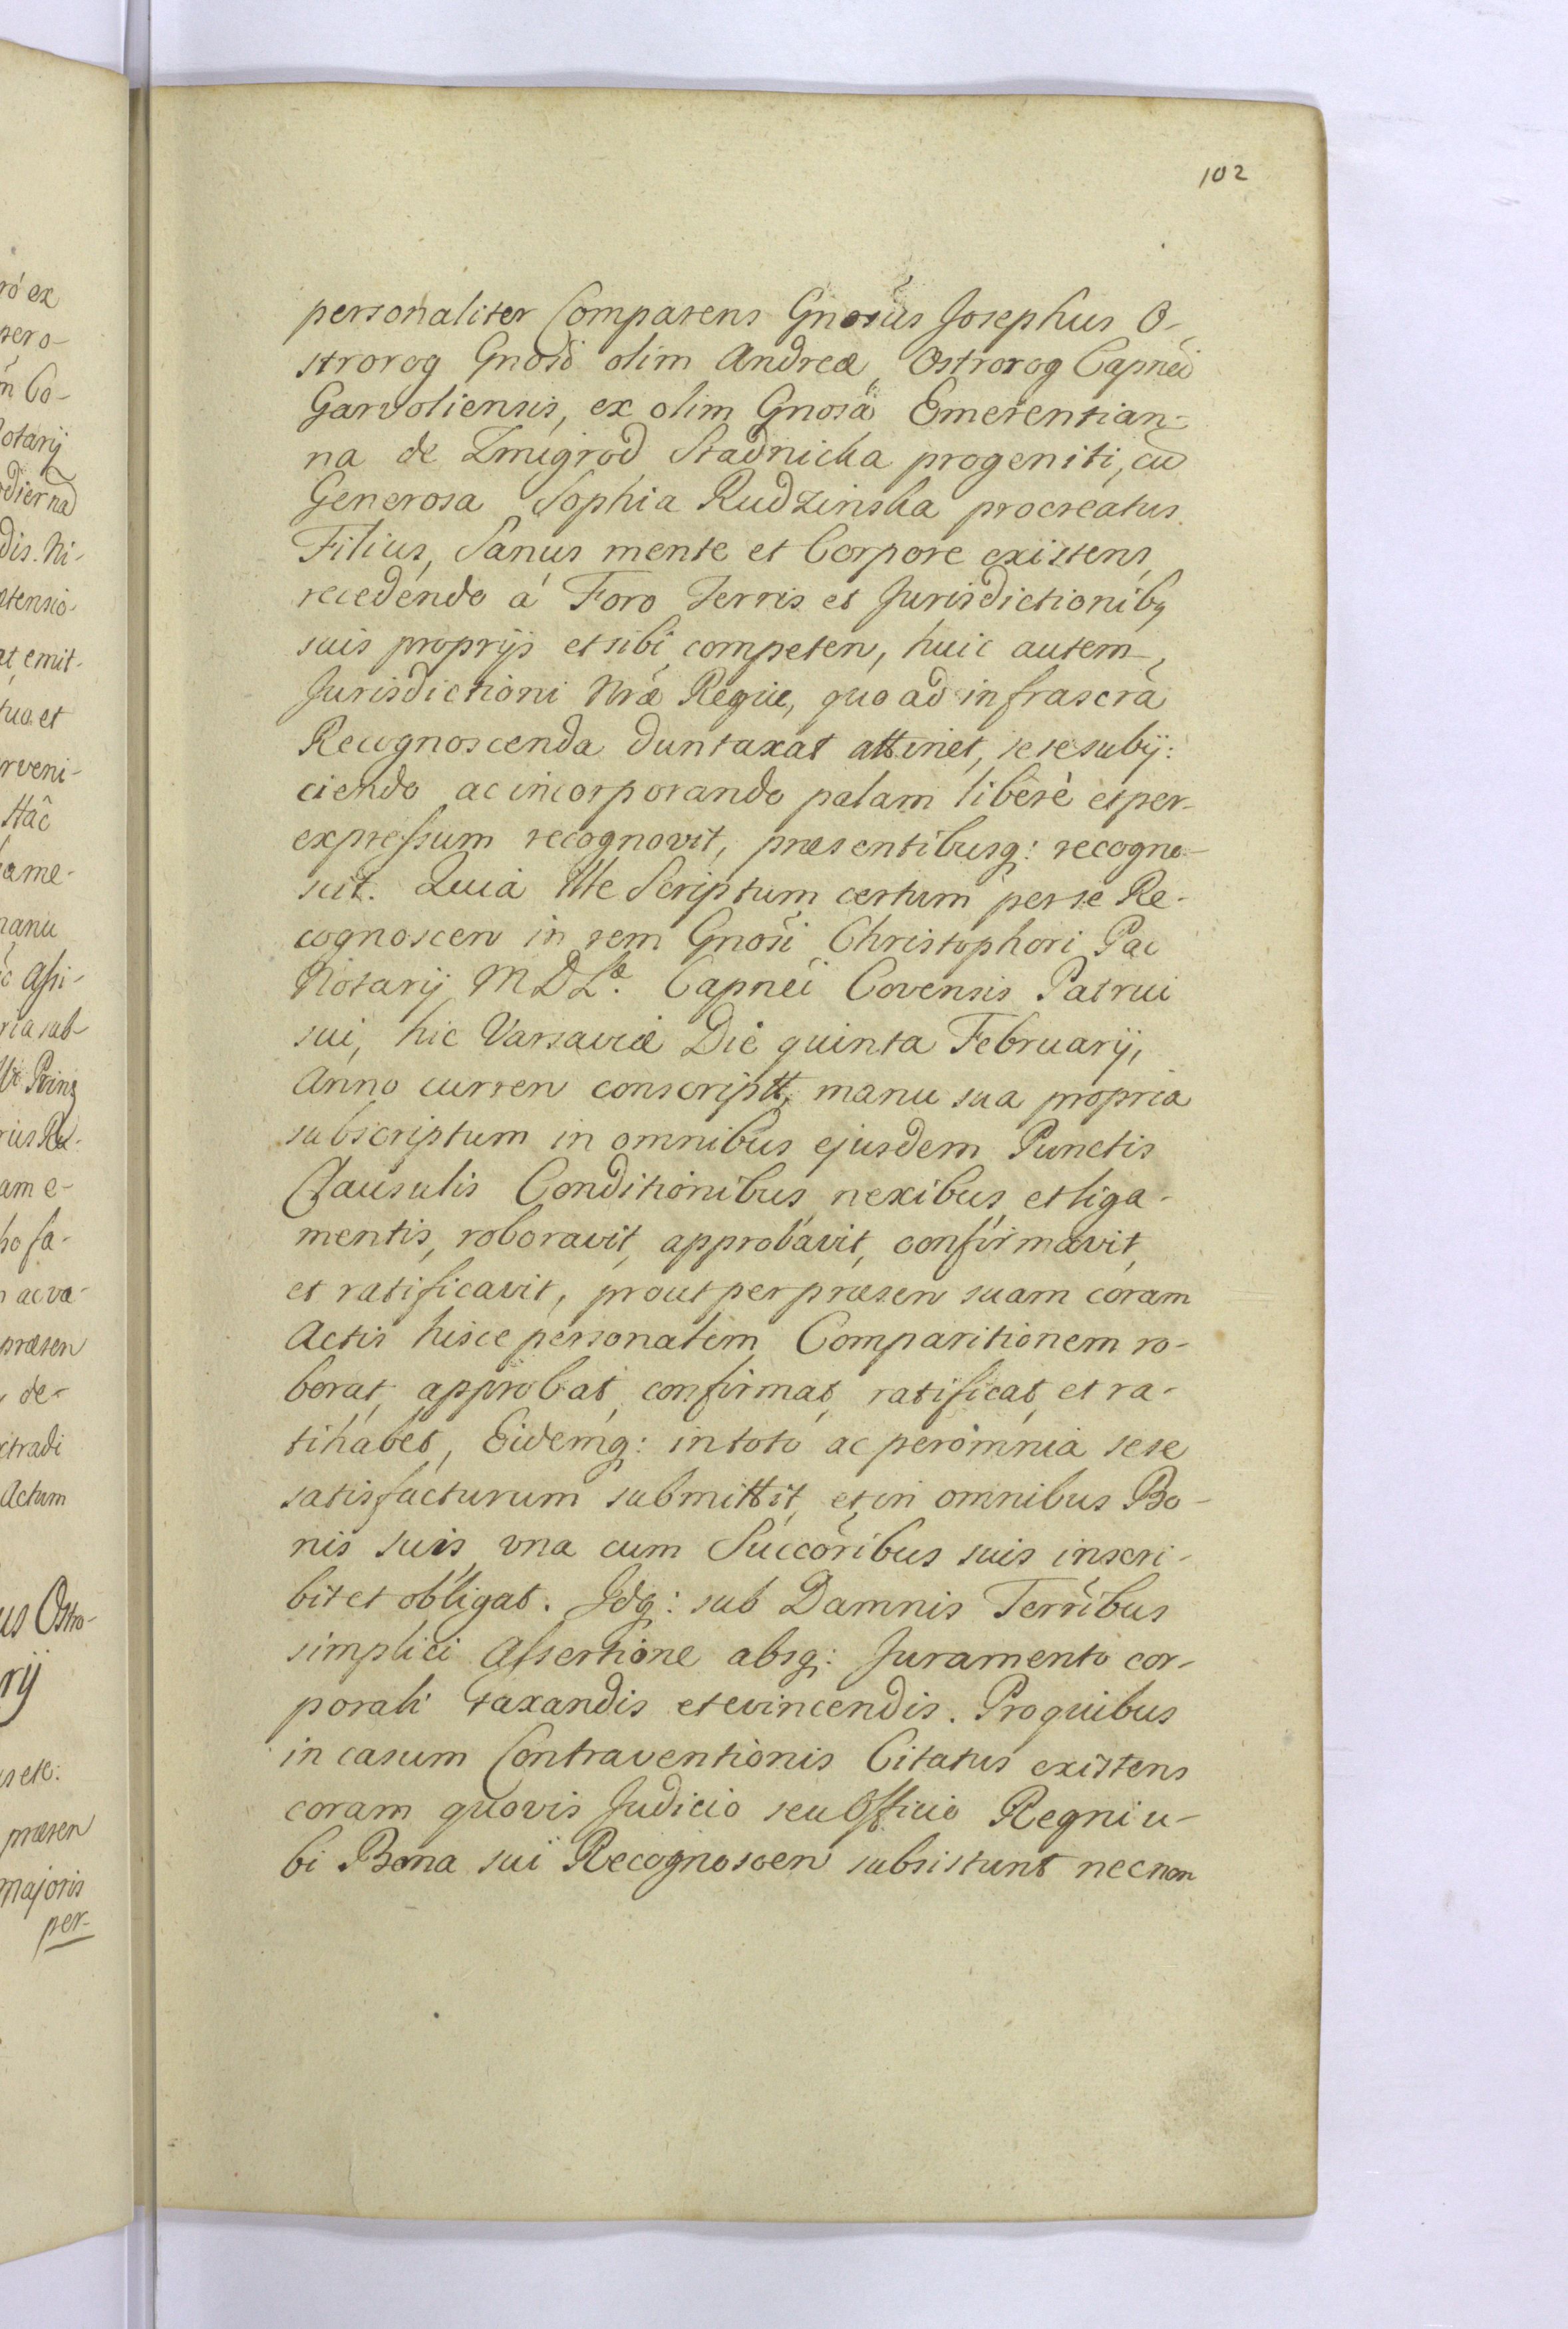 102
ró ex
rero-
m̃ Co-
otarij
odierna
dis. Ni-
tensio-
at, emit-
tua et
rveni-
Hâc
ame-
manu
c Assi-
ria sub
Prin
rius Re-
am e-
ho fa-
ac va-
præsen
de-
xtradi
Actum
us Ostro-
rij
s etc:
præsen
majoris
per-
personaliter Comparens Gnosũs Josephus O-
strorog Gnosĩ olim Andreæ Ostrorog Capnẽi
Garvoliensis, ex olim Gnosã Emerentian-
na de Zmigrod Stadnicka progeniti, cũ
Generosa Sophia Rudzinska procreatus
Filius, Sanus mente et Corpore existens,
recedendo á Foro Terris et Jurisdictionibq
suis proprijs et sibi competen, huic autem
Jurisdictioni Nræ Regiæ, quo ad infrascrã
Recognoscenda duntaxat attinet, sese subij:
ciendo ac incorporando palam liberè et per-
expressum recognovit, præsentibusq: recogno-
scit. Quia Ille Scriptum certum per se Re-
cognoscen in rem Gnosĩ Christophori Pac
Notarij M D Læ. Capnẽi Covensis Patrui
sui, hic Varsaviæ Die quinta Februarij,
Anno curren conscriptt, manu sua propria
subscriptum in omnibus ejusdem Punctis
Clausulis Conditionibus nexibus et liga-
mentis, roboravit, approbavit, confirmavit,
et ratificavit, prout per præsen suam coram
Actis hisce personalem Comparitionem ro-
borat, approbat, confirmat, ratificat, et ra-
tihabet, Eidemq: in toto ac per omnia sese
satisfacturum submittit, et in omnibus Bo-
nis suis una cum Succõribus suis inscri-
bit et obligat. Idq: sub Damnis Terrĩbus
simplici Assertione absq: Juramento cor-
porali taxandis et evincendis. Pro quibus
in casum Contraventionis Citatus existens
coram quovis Judicio seu Officio Regni u-
bi Bona sui Recognoscen subsistunt nec non